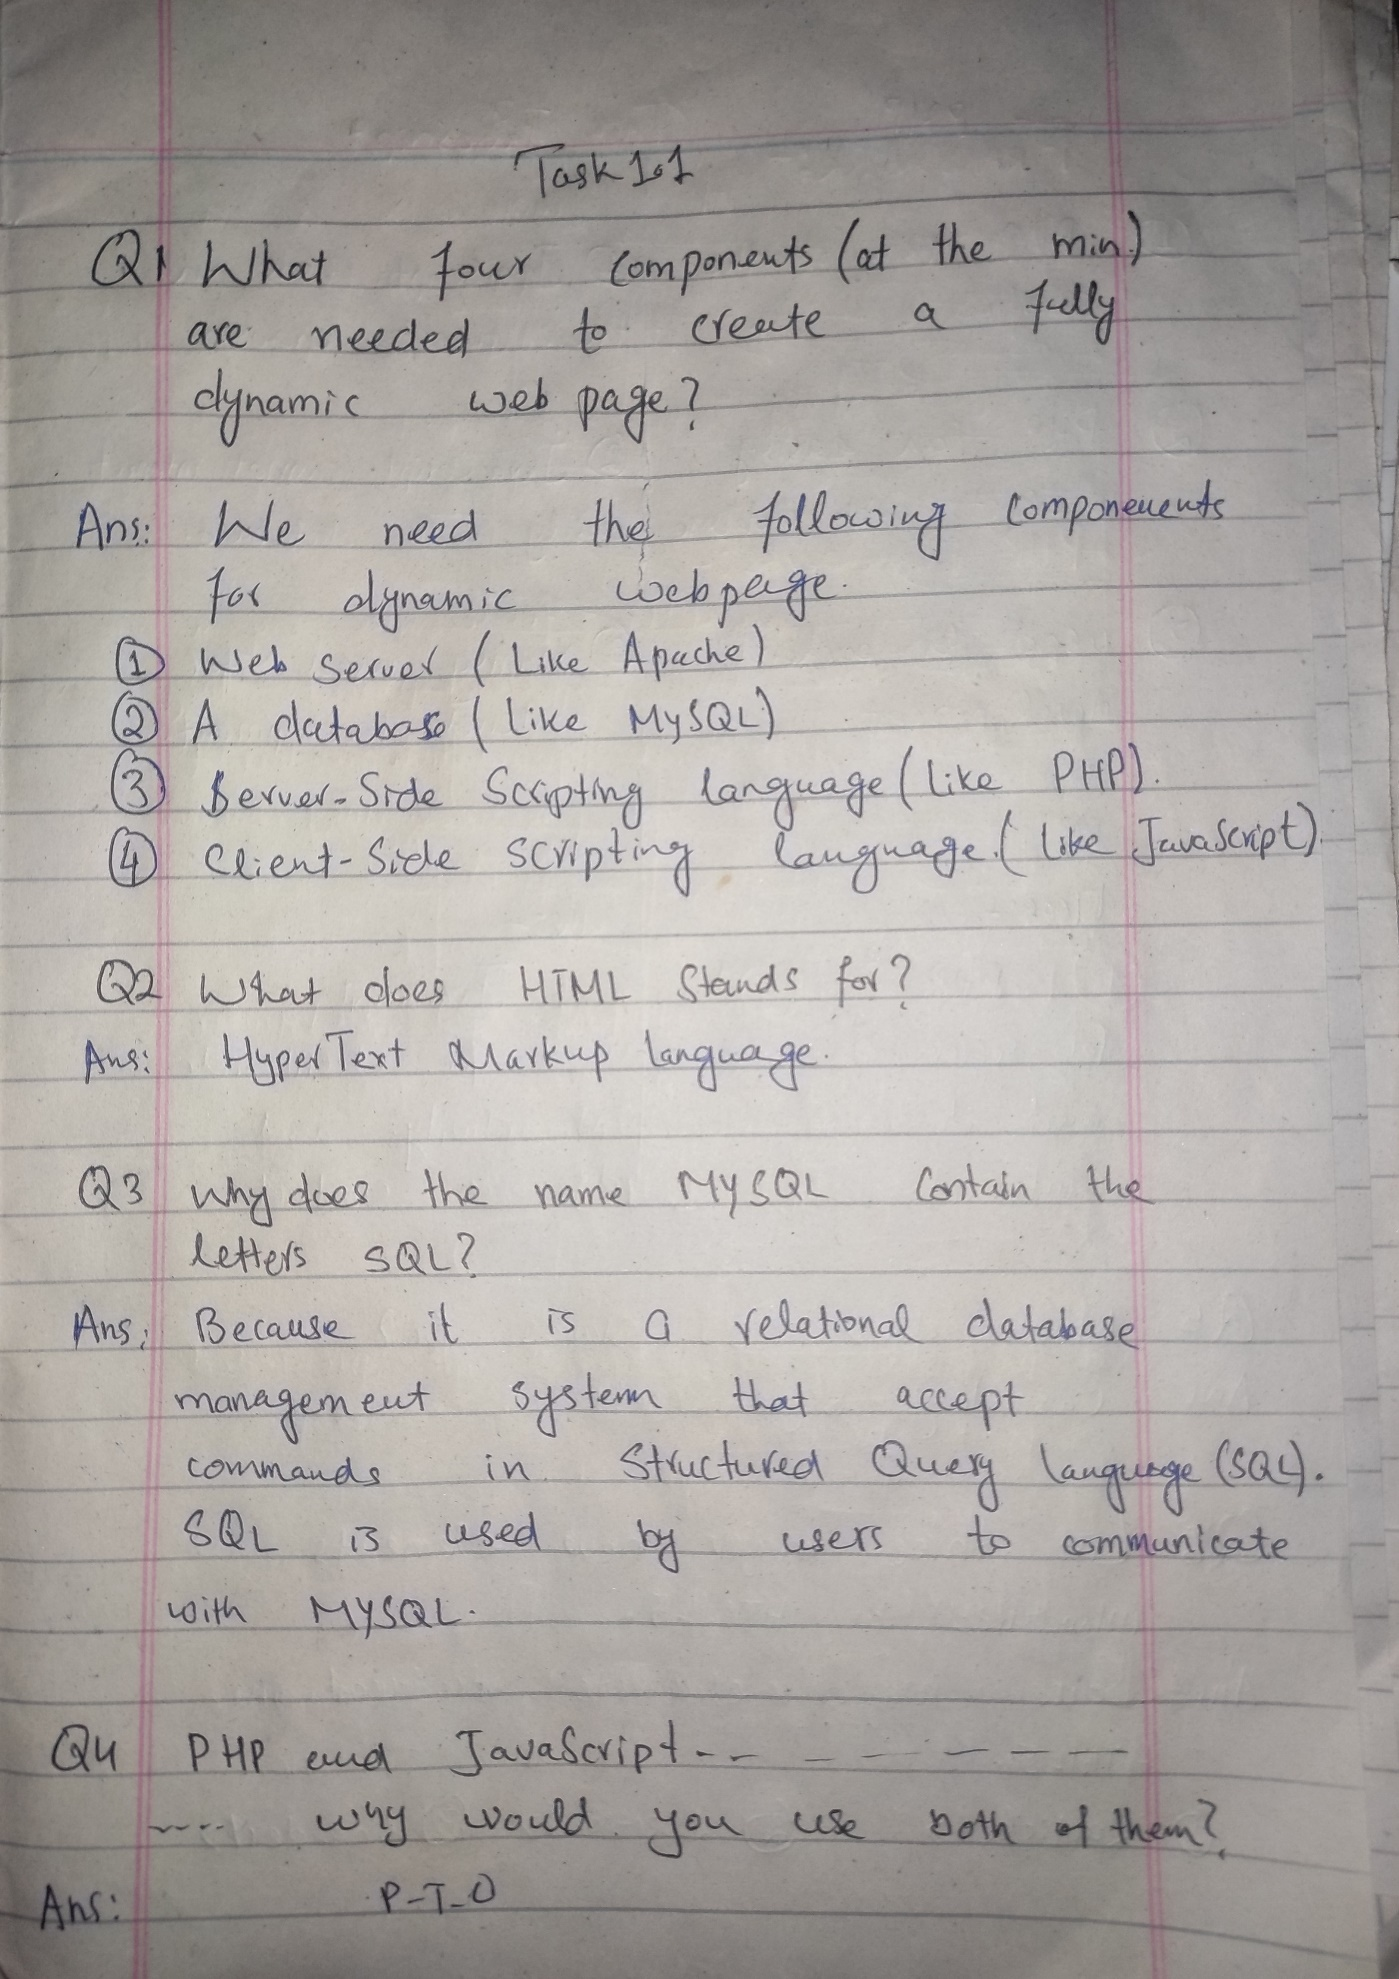 Task 1.1
Q1 What four components (at the min)
are needed to create a fully
dynamic web page?
Ans: We need the following componenents
for dynamic webpage.
① Web Server (Like Apache)
② A database (Like MySQL)
③ Server-Side Scripting language (like PHP).
④ Client-Side scripting language. (like JavaScript).
Q2 What does HTML Stands for?
Ans: HyperText Markup language.
Q3 Why does the name MYSQL Contain the
letters SQL?
Ans: Because it is a relational database
management system that accept
commands in Structured Query language (SQL).
SQL is used by users to communicate
with MYSQL.
Q4 PHP and JavaScript -- - - - - - -
---- why would you use both of them?
Ans: P-T-O